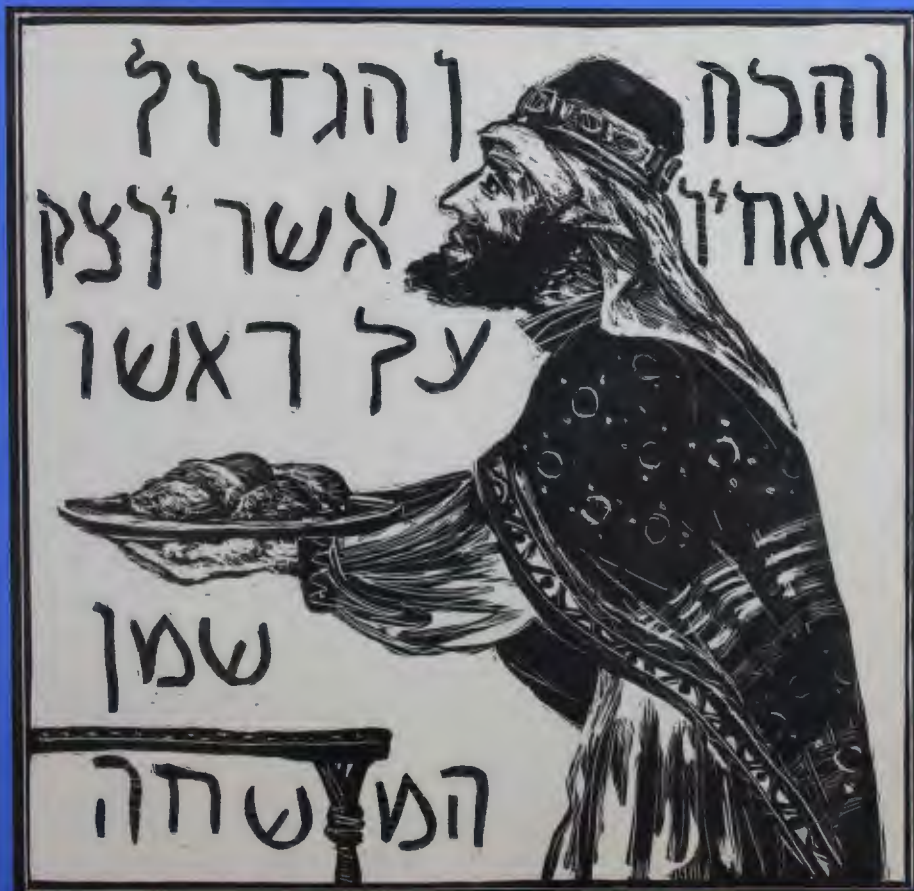 והכהן הגדול
מאחיו אשר יוצק
על ראשו
שמן
המשחה